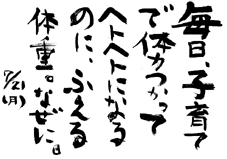 毎日、子育て
で体力つかって
ヘトヘトになる
のに、ふえる
体重。なぜに。
9/21(月)